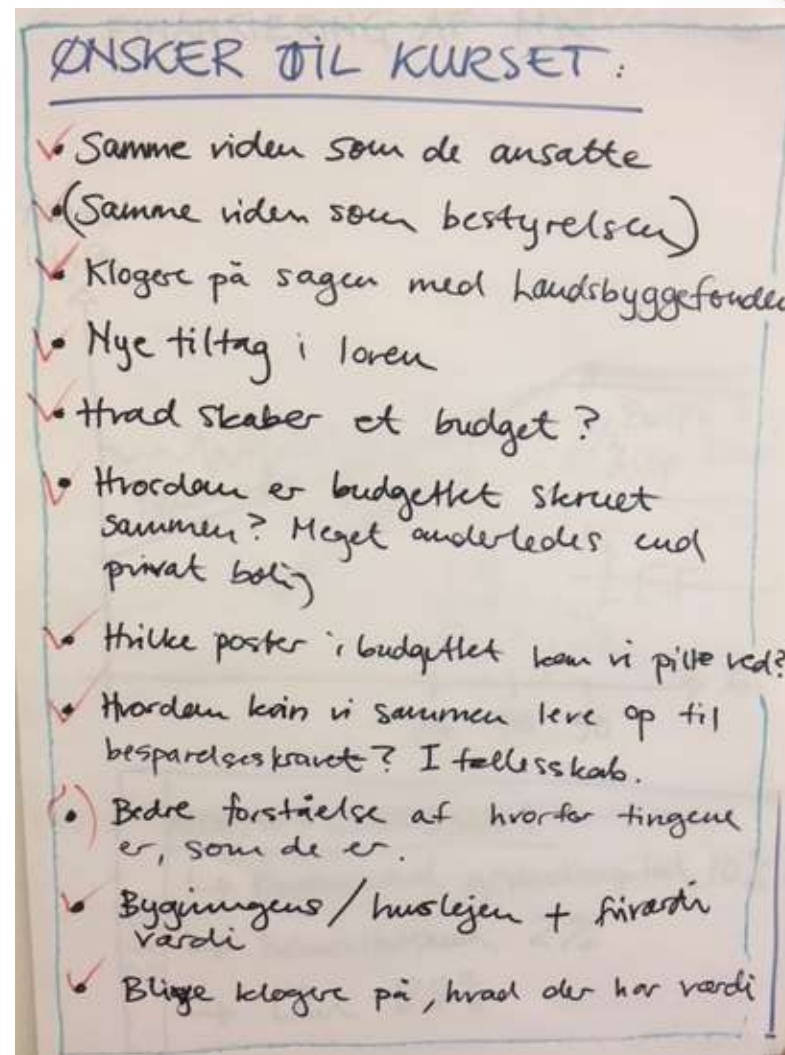 ØNSKER TIL KURSET:
• Samme viden som de ansatte
• (Samme viden som bestyrelsen)
• Klogere på sagen med Landsbyggefonden
• Nye tiltag i loven
• Hvad skaber et budget?
• Hvordan er budgettet skruet
sammen? Meget anderledes end
privat bolig
• Hvilke poster i budgettet kan vi pille ved?
• Hvordan kan vi sammen leve op til
besparelseskravet? I fællesskab.
• Bedre forståelse af hvorfor tingene
er, som de er.
• Bygningens / huslejen + friværdi
værdi
• Blive klogere på, hvad der har værdi